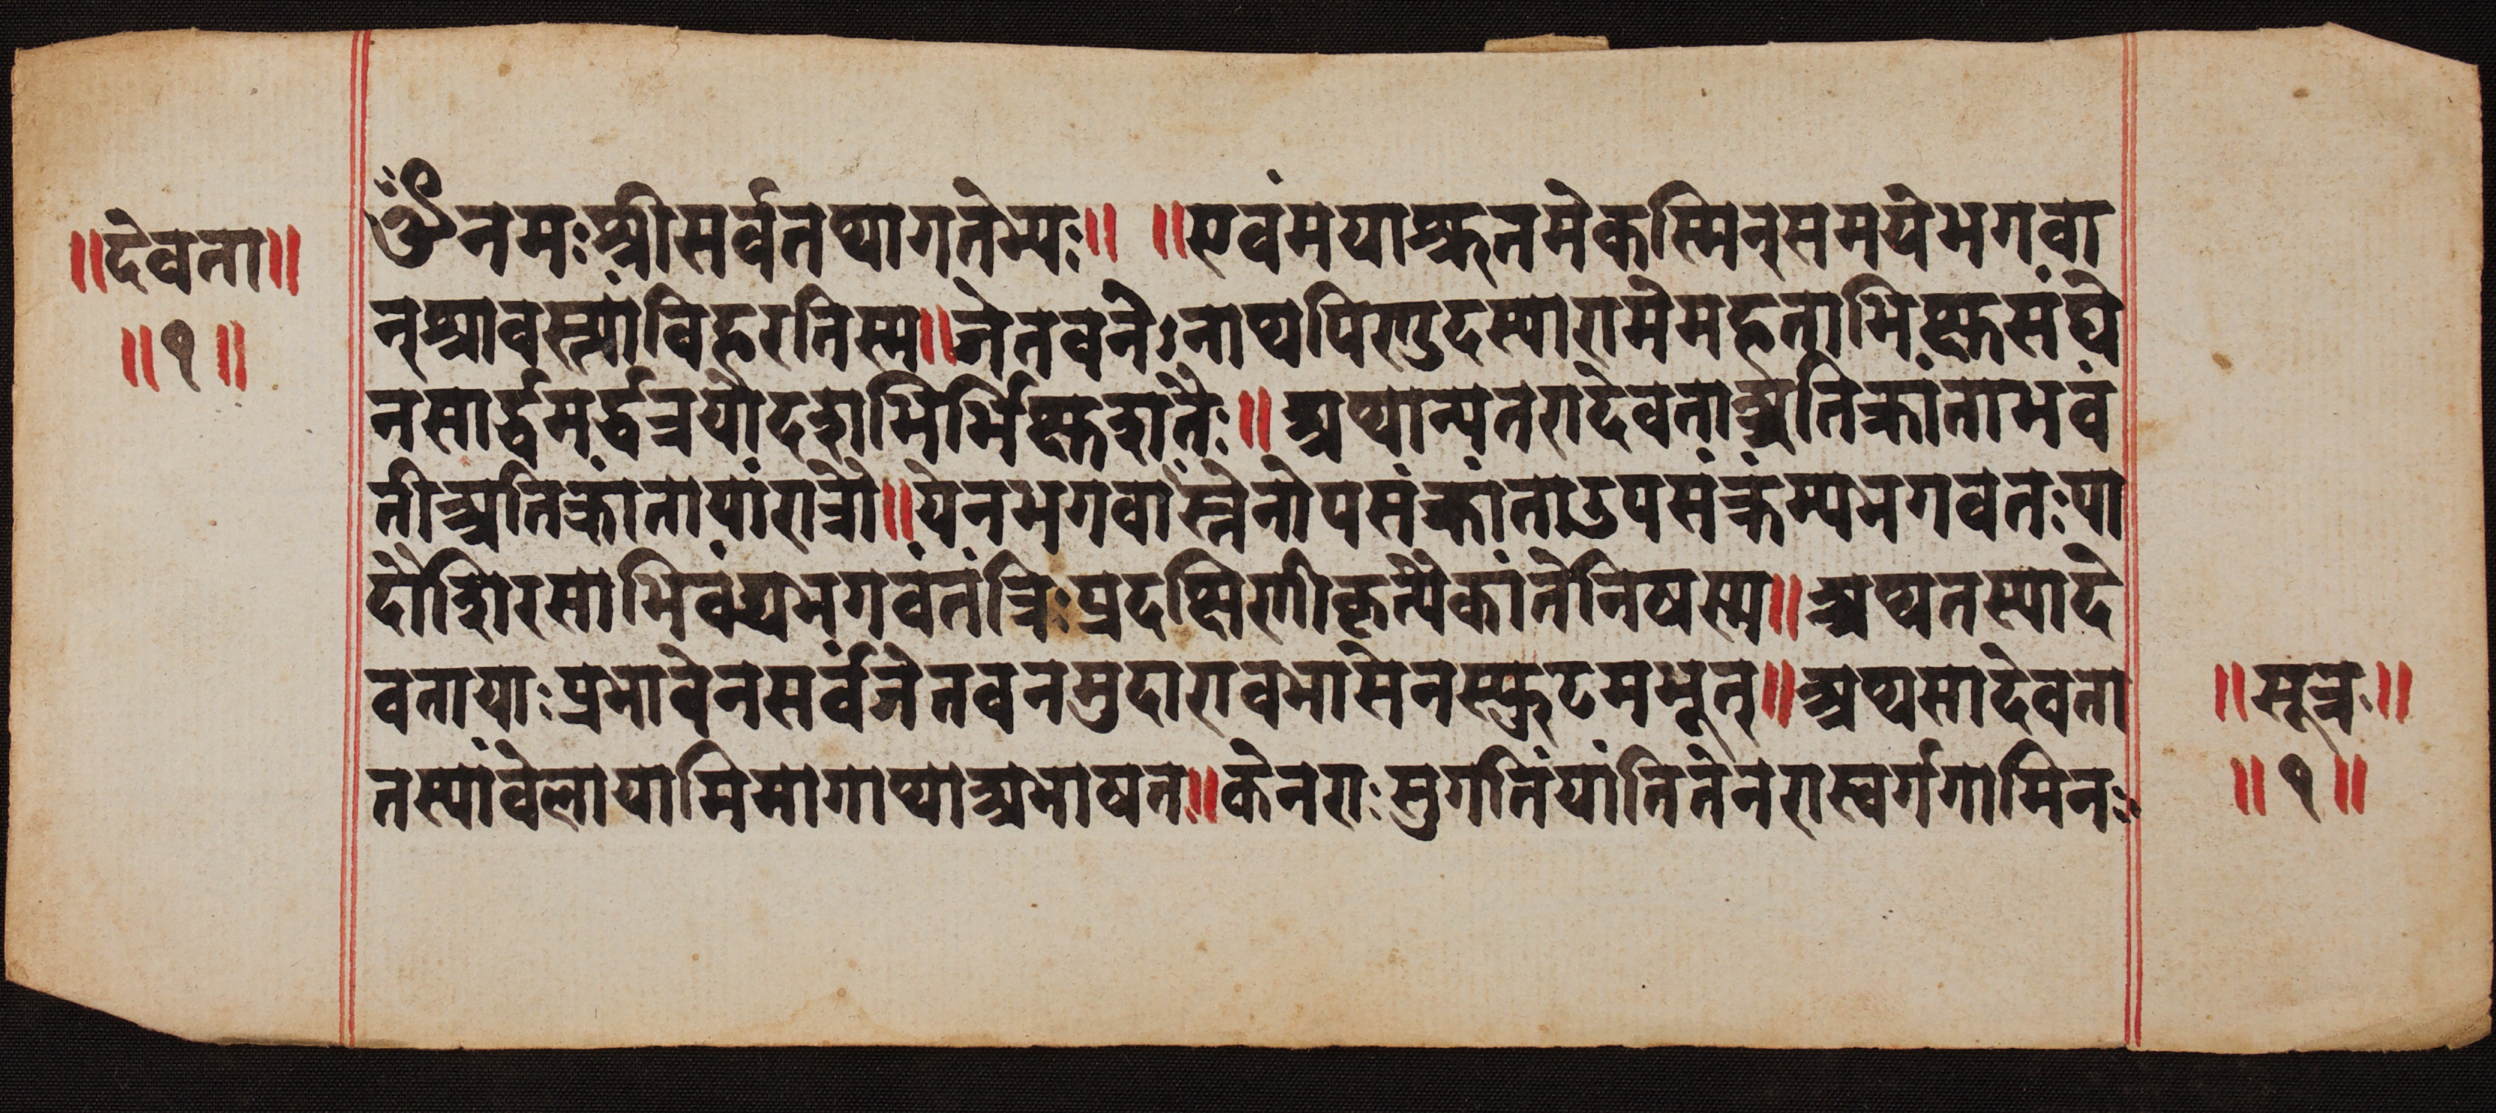 ॥देवता॥
॥१॥
ॐनमःश्रीसर्वतथागतेभ्यः॥ ॥एवंमयाश्रुतमेकस्मिन्समयेभगवा
न्श्रावस्त्यांविहरतिस्म॥जेतवनेःनाथपिण्डदस्यारामेमहताभिक्षुसंघे
नसार्द्धमर्द्धत्रयोदशभिर्भिक्षुशतैः॥अथान्यतरादेवताअतिक्रांताभवं
तीअतिक्रांतायांरात्रौ॥येनभगवाँस्तेनोपसंक्रांताउपसंक्रंम्यभगवतःपा
दौशिरसाभिवंद्यभगवंतंत्रिःप्रदक्षिणीकृत्यैकांतेनिषस्म॥अथतस्यादे
वतायाःप्रभावेनसर्वंजेतवनमुदारावभासेनस्फुटमभूत्॥अथसादेवता
तस्यांवेलायामिमागाथाअभाषत॥केनराःसुगतिंयांतितेनरास्वर्गगामिनः
॥सूत्र॥
॥१॥